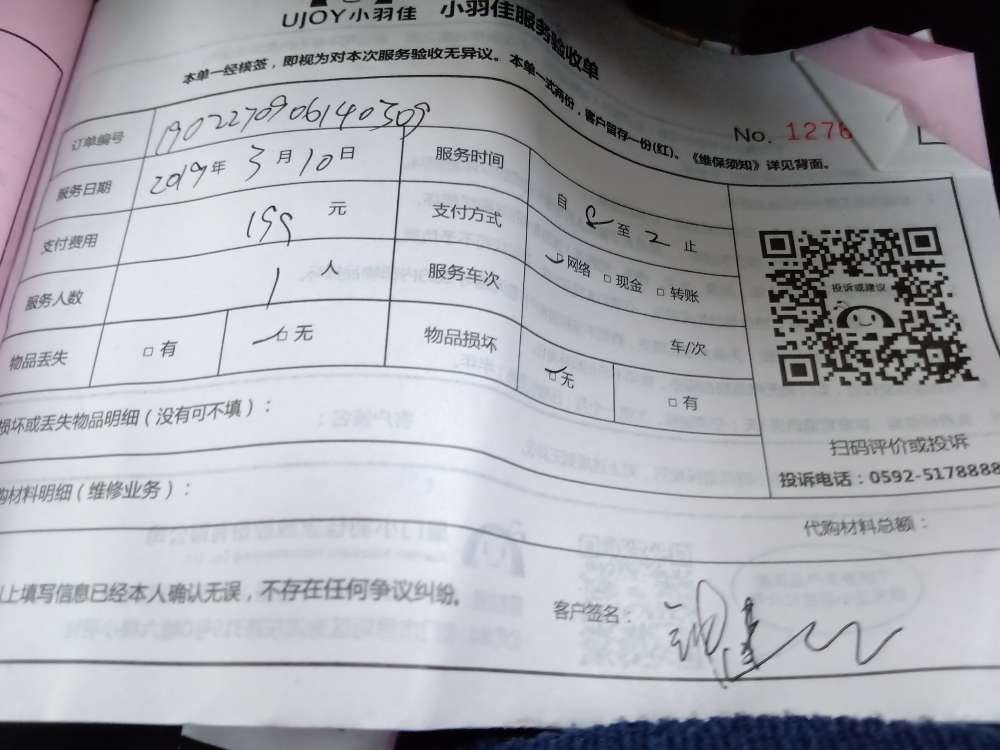 UJOY小羽佳 小羽佳服务验收单
本单一经核签，即视为对本次服务验收无异议。本单一式两份，客户留存一份(红)。《维保须知》详见背面。
No. 1276
订单编号 1902270906140309
服务日期 2019年3月10日 服务时间 自 8 至 2 止
支付费用 199 元 支付方式 网络 □现金 □转账
服务人数 1 人 服务车次 车/次
物品丢失 □有 □无 物品损坏 □无 □有
投诉或建议
扫码评价或投诉
投诉电话：0592-5178888
损坏或丢失物品明细（没有可不填）：
购材料明细（维修业务）：
代购材料总额：
上填写信息已经本人确认无误，不存在任何争议纠纷。
客户签名：